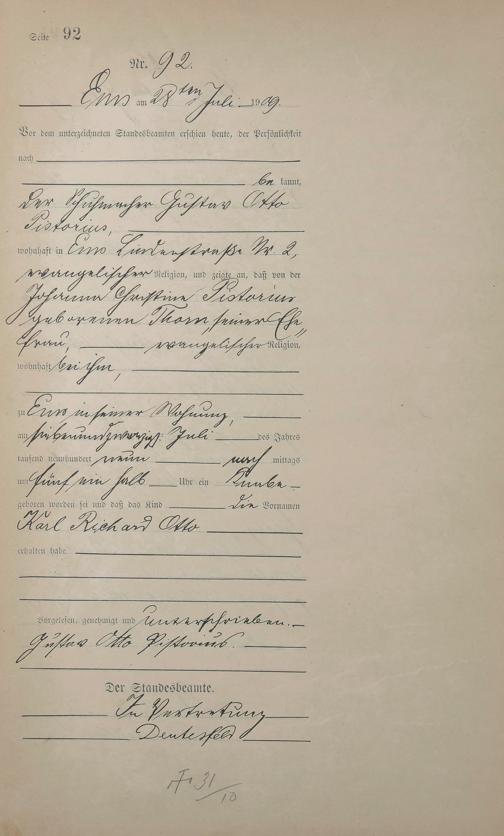 Seite 92
Nr. 92.
Ems am 28ten Juli 1909.
Vor dem unterzeichneten Standesbeamten erschien heute, der Persönlichkeit
nach
be kannt,
der Schuhmacher Gustav Otto
Pistorius,
wohnhaft in Ems Lindenstraße Nr. 2,
evangelischer Religion, und zeigte an, daß von der
Johanna Christine Pistorius
geborenen Thorn, seiner Ehe„
frau, evangelischer Religion,
wohnhaft bei ihm,
zu Ems in seiner Wohnung,
am siebenundzwanzigst. Juli des Jahres
tausend neunhundert neun nach mittags
um fünf ein halb Uhr ein Knabe
geboren worden sei und daß das Kind die Vornamen
Karl Richard Otto
erhalten habe.
Vorgelesen, genehmigt und unterschrieben.
Gustav Otto Pistorius.
Der Standesbeamte.
In Vertretung
31/10